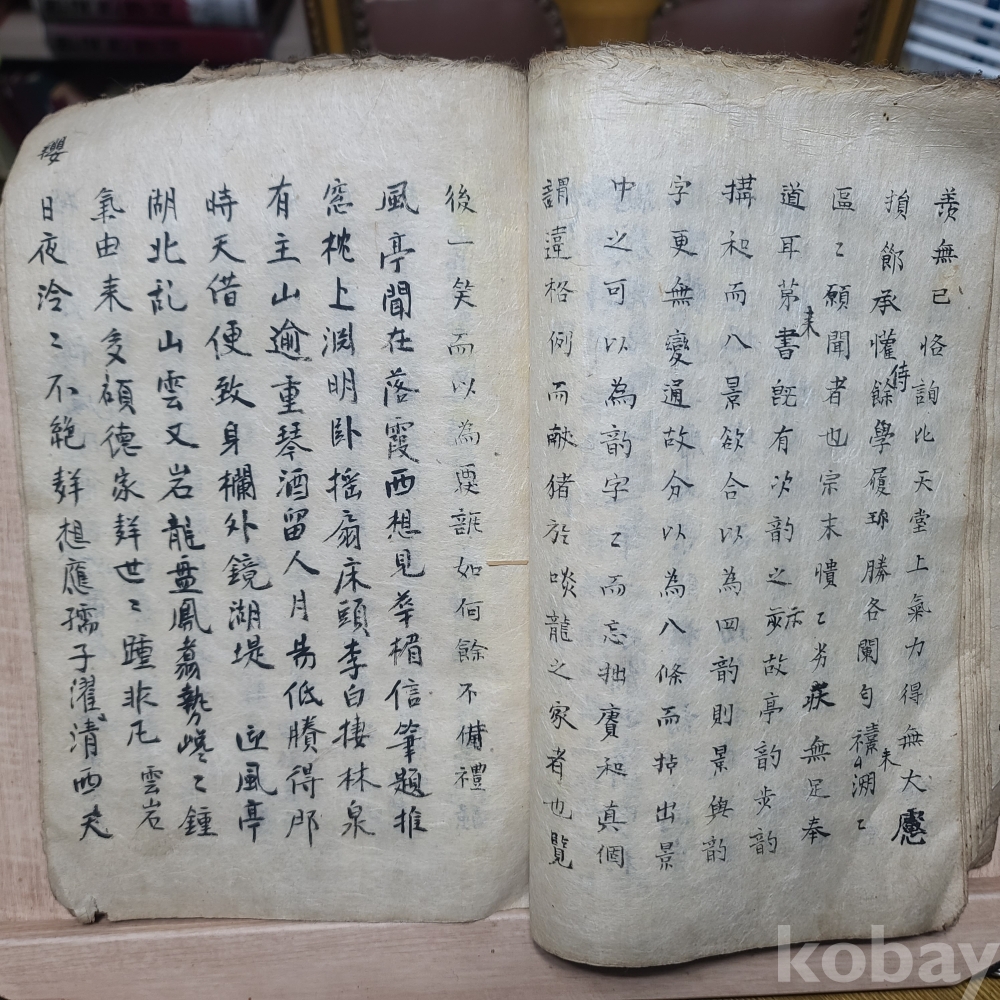 羨無已恪詢比天堂上氣力得無大
損節承懽侍餘學履珎勝各闌匀禧溯未〻
區〻願聞者也宗末憒〻劣庥無足奉
道耳苐書旣有次韵之示故亭韵步韵
搆和而八景欲合以為四韵則景與韵
字更無變通故分以為八條而拈出景
中之可以為韵字〻而忘拙賡和真個
謂違格例而献猪於啖龍之家者也覧
後一笑而以為覆瓿如何餘不備禮
風亭聞在落霞西想見華楣信筆題推
窓枕上淵明卧搖扇床頭李白捿林泉
有主山逾重琴酒留人月昜低賸得郎
時天借便致身欄外鏡湖堤 迎風亭
湖北乱山雲又岩龍盤鳳翥勢巉〻鍾
氣由来多碩德家群世〻踵非凡 雲岩
日夜泠〻不絶群想應孺子濯清
纓
kobay